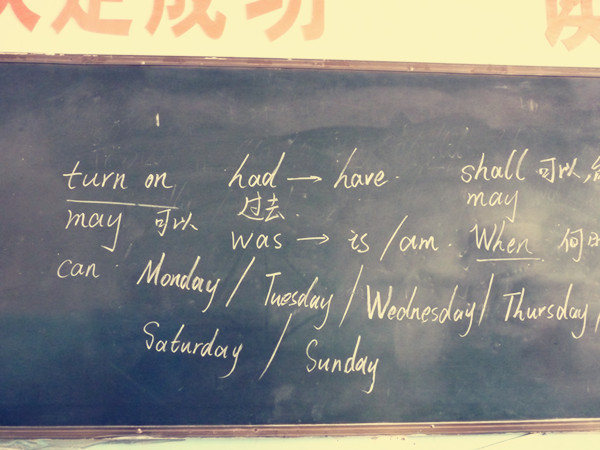 定成功
turn on had → have. shall 可以,
may 可以 过去. may
was → is / am. When 何
can Monday / Tuesday / Wednesday / Thursday /
Saturday / Sunday